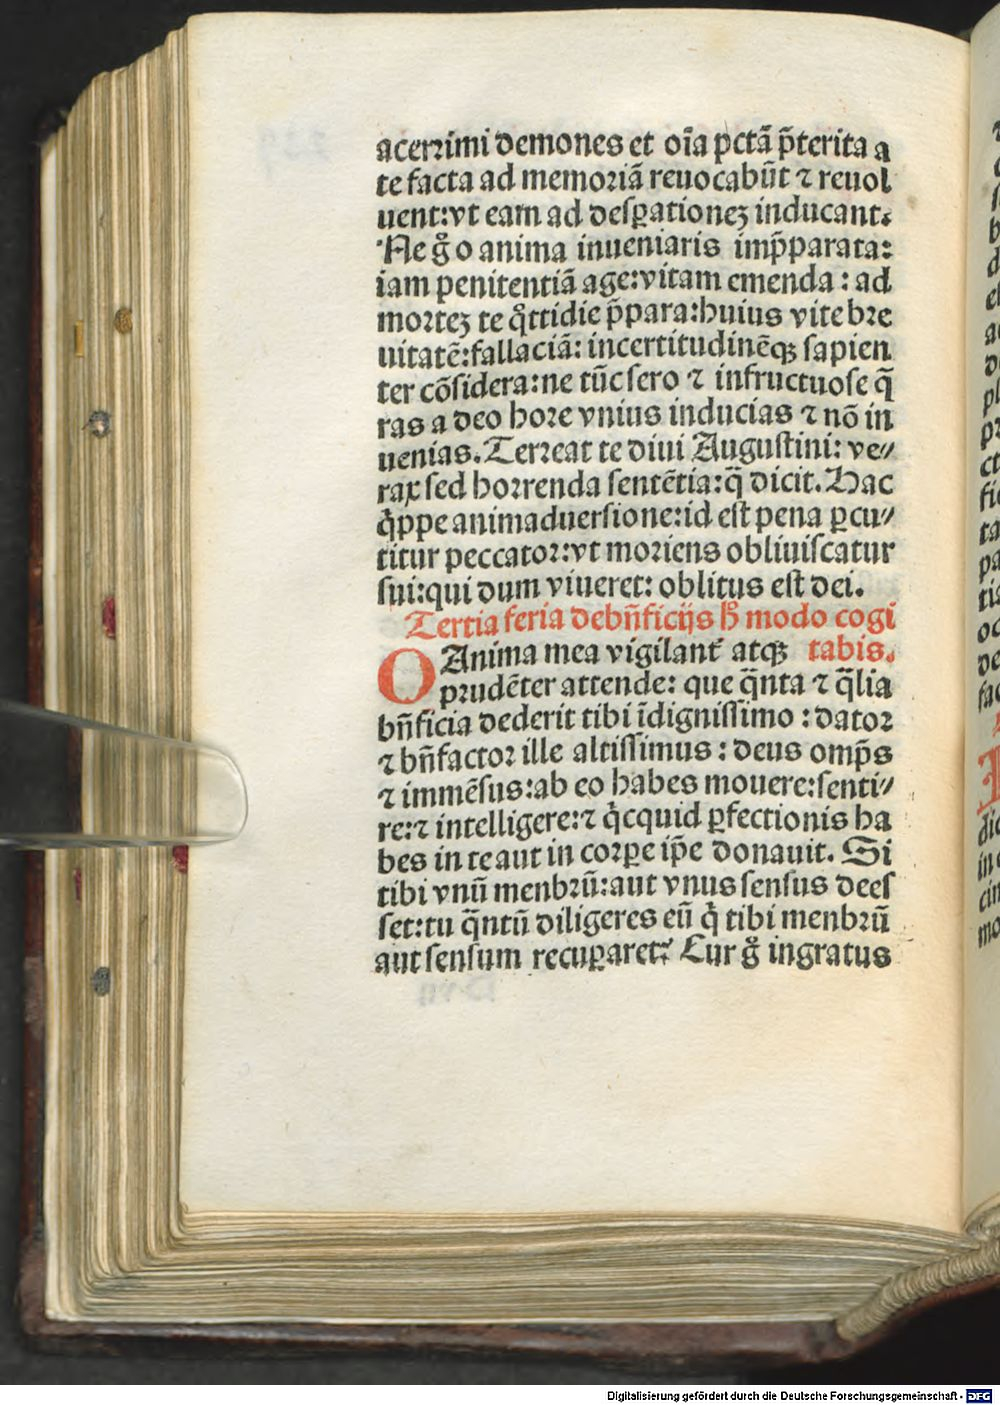 acerrimi demones et oı̃a pctã p̃terita a
te facta ad memoriã reuocabũt ⁊ reuol
uent:vt eam ad desꝑationeꝫ inducant.
Ne gͦ o anima inueniaris imp̃parata:
iam penitentiã age:vitam emenda: ad
morteꝫ te qͦttidie p̃para:huius vite bre
uitatẽ:fallaciã: incertitudinẽqꝫ sapien
ter cõsidera:ne tũc sero ⁊ infructuose q̃
ras a deo hore vnius inducias ⁊ nõ in
uenias. Terreat te diui Augustini: ve⸗
rax sed horrenda sentẽtia:q̃ dicit. Hac
qͥppe animaduersione:id est pena ꝑcu⸗
titur peccator:vt moriens obliuiscatur
sui:qui dum viueret: oblitus est dei.
Tertia feria de bñficijs h̃ modo cogi
O Anima mea vigilant̃ atqꝫ tabis.
prudẽter attende: que q̃nta ⁊ q̃lia
bñficia dederit tibi ĩdignissimo: dator
⁊ bñfactor ille altissimus: deus omp̃s
⁊ immẽsus:ab eo habes mouere:senti⸗
re:⁊ intelligere:⁊ qͥcquid ꝑfectionis ha
bes in te aut in corꝑe ip̃e donauit. Si
tibi vnũ menbrũ:aut vnus sensus dees
set:tu q̃ntũ diligeres eũ qͥ tibi menbrũ
aut sensum recuꝑaret? Cur gͦ ingratus
Digitalisierung gefördert durch die Deutsche Forschungsgemeinschaft - DFG